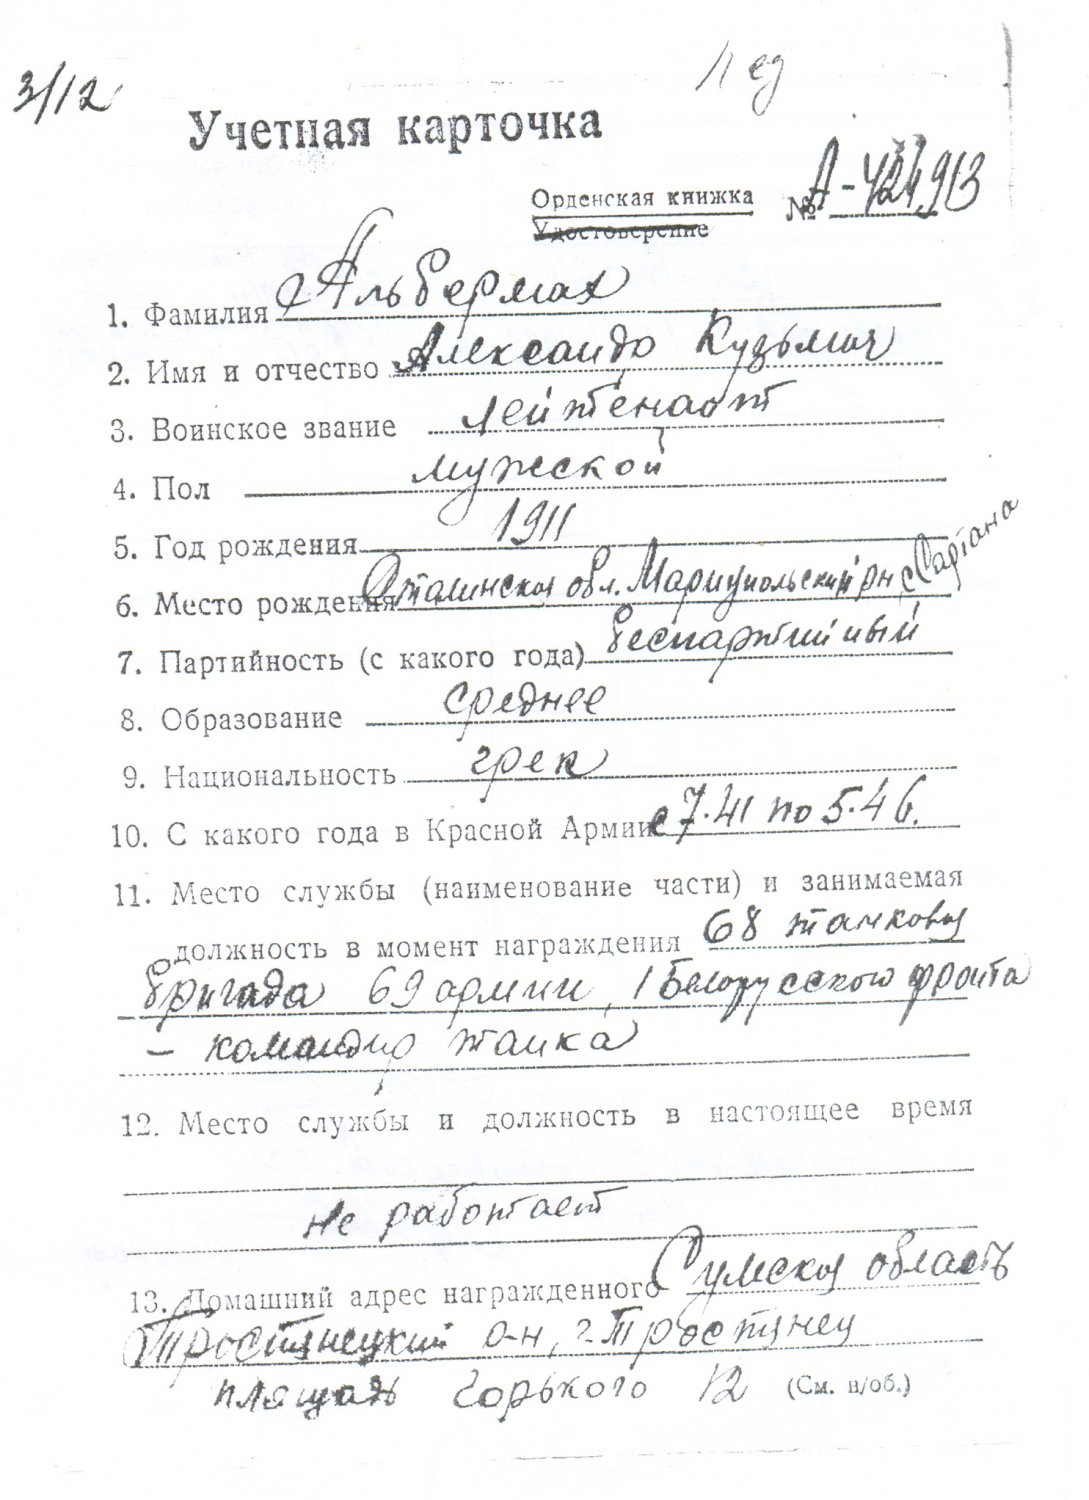 3/12
Учетная карточка
Орденская книжка № А-424913
Удостоверение
1. Фамилия Альбермах
2. Имя и отчество Александр Кузьмич
3. Воинское звание лейтенант
4. Пол мужской
5. Год рождения 1911
6. Место рождения Сталинская обл. Мариупольский рн с Сартана
7. Партийность (с какого года) беспартийный
8. Образование среднее
9. Национальность грек
10. С какого года в Красной Армии с 7.41 по 5.46.
11. Место службы (наименование части) и занимаемая
должность в момент награждения 68 танковая
бригада 69 армии, 1 Белорусского фронта
– командир танка
12. Место службы и должность в настоящее время
не работает
13. Домашний адрес награжденного Сумская область
Тростянецкий р-н, г. Тростянец
площадь Горького 12 (См. н/об.)